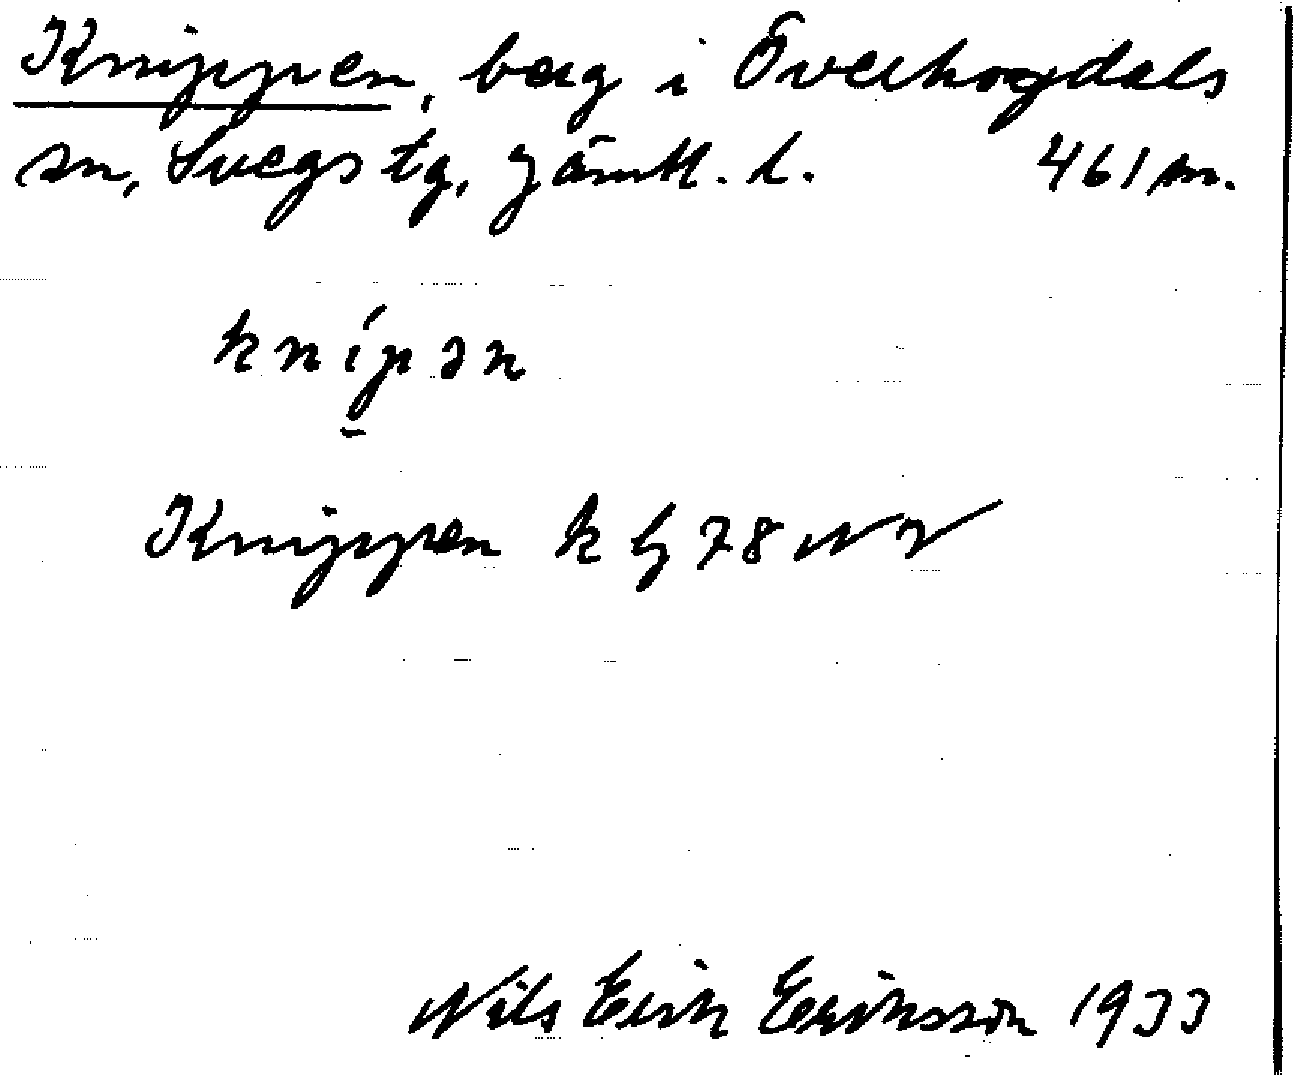 Knippen, berg i Överhogdals
sn, Svegs tg, Jämtl. l. 461 m.
kni̍p̱ən
Knippen k bj 78 NV
Nils Erik Eriksson 1933